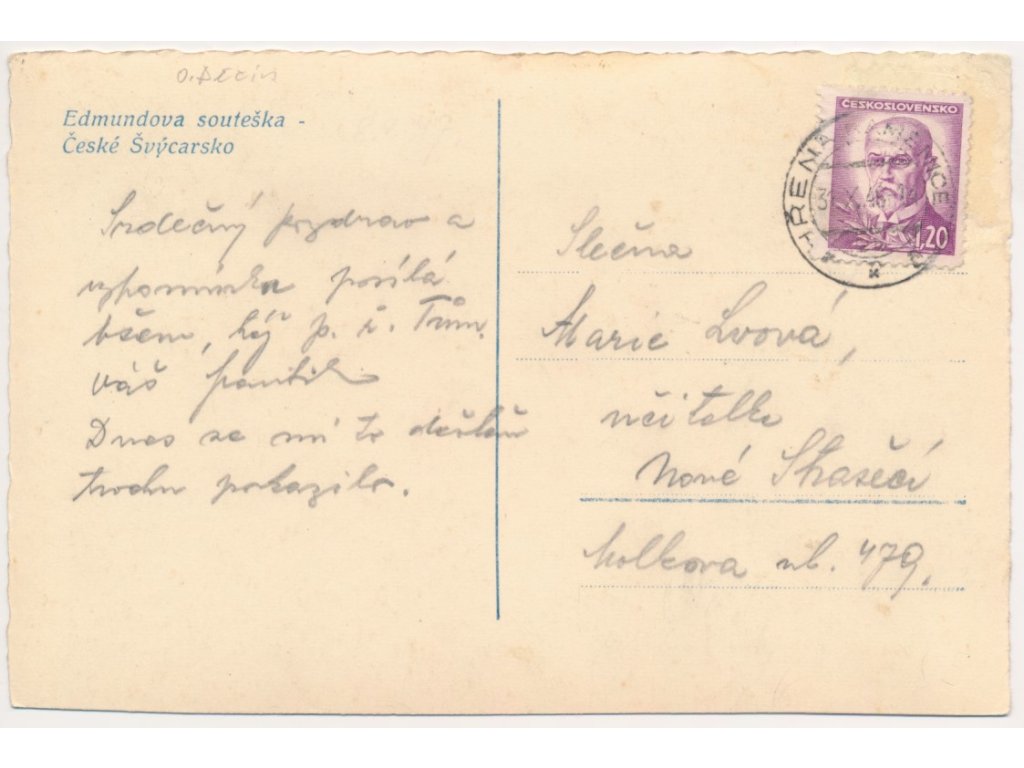 O. DĚČÍN
Edmundova souteška -
České Švýcarsko
Srdečný pozdrav a
vzpomínku posílá
všem,
váš Frantík
Dnes se mi to
trochu pokazilo.
ČESKOSLOVENSKO
1,20
Slečna
Marie Lvová,
učitelka
Nové Strašecí
ul. 479.